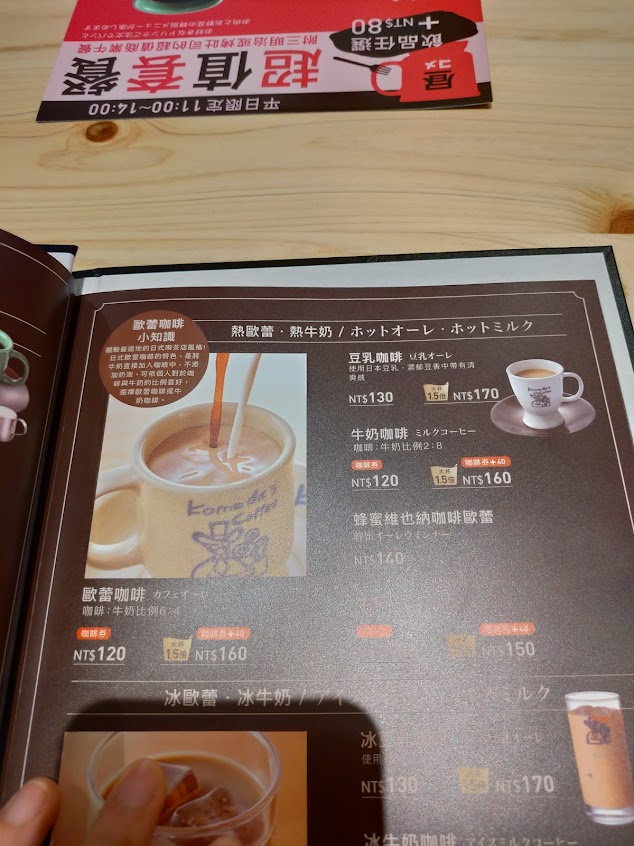 平日限定 11:00~14:00
超值套餐
附三明治或烤吐司的超值商業午餐
昼
コメ
飲品任選
+NT$80
歐蕾咖啡
小知識
體驗最道地的日式喫茶店風格!
日式歐蕾咖啡的特色，是將
牛奶直接加入咖啡中，不添
加奶泡，可依個人對於咖
啡與牛奶的比例喜好，
選擇歐蕾咖啡或牛
奶咖啡。
熱歐蕾・熱牛奶 / ホットオーレ・ホットミルク
豆乳咖啡 豆乳オーレ
使用日本豆乳，濃郁豆香中帶有清
爽感
NT$130 大杯 1.5倍 NT$170
牛奶咖啡 ミルクコーヒー
咖啡：牛奶比例2:8
咖啡券 咖啡券+40
NT$120 大杯 1.5倍 NT$160
蜂蜜維也納咖啡歐蕾
蜂蜜オーレウインナー
NT$140
Komeda's
Coffee
歐蕾咖啡 カフェオーレ
咖啡：牛奶比例6:4
咖啡券 咖啡券+40
NT$120 大杯 1.5倍 NT$160
NT$150
冰歐蕾・冰牛奶 / アイ
ミルク
冰
使用
NT$130 NT$170
冰牛奶咖啡 アイスミルクコーヒー